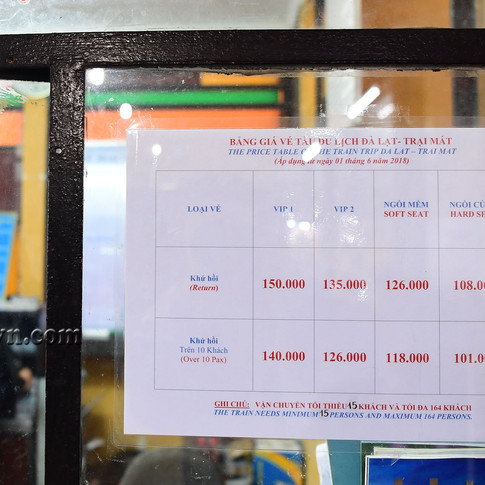 BẢNG GIÁ VÉ TÀU DU LỊCH ĐÀ LẠT- TRẠI MÁT
THE PRICE TABLE THE TRAIN TRIP DA LAT – TRAI MAT
(Áp dụng từ ngày 01 tháng 6 năm 2018)
LOẠI VÉ VIP 1 VIP 2 NGỒI MỀM SOFT SEAT NGỒI HARD
Khứ hồi (Return) 150.000 135.000 126.000 108.00
Khứ hồi Trên 10 Khách (Over 10 Pax) 140.000 126.000 118.000 101.00
GHI CHÚ: VẬN CHUYỂN TỐI THIỂU 15 KHÁCH VÀ TỐI ĐA 164 KHÁCH
THE TRAIN NEEDS MINIMUM 15 PERSONS AND MAXIMUM 164 PERSONS.
vn.com